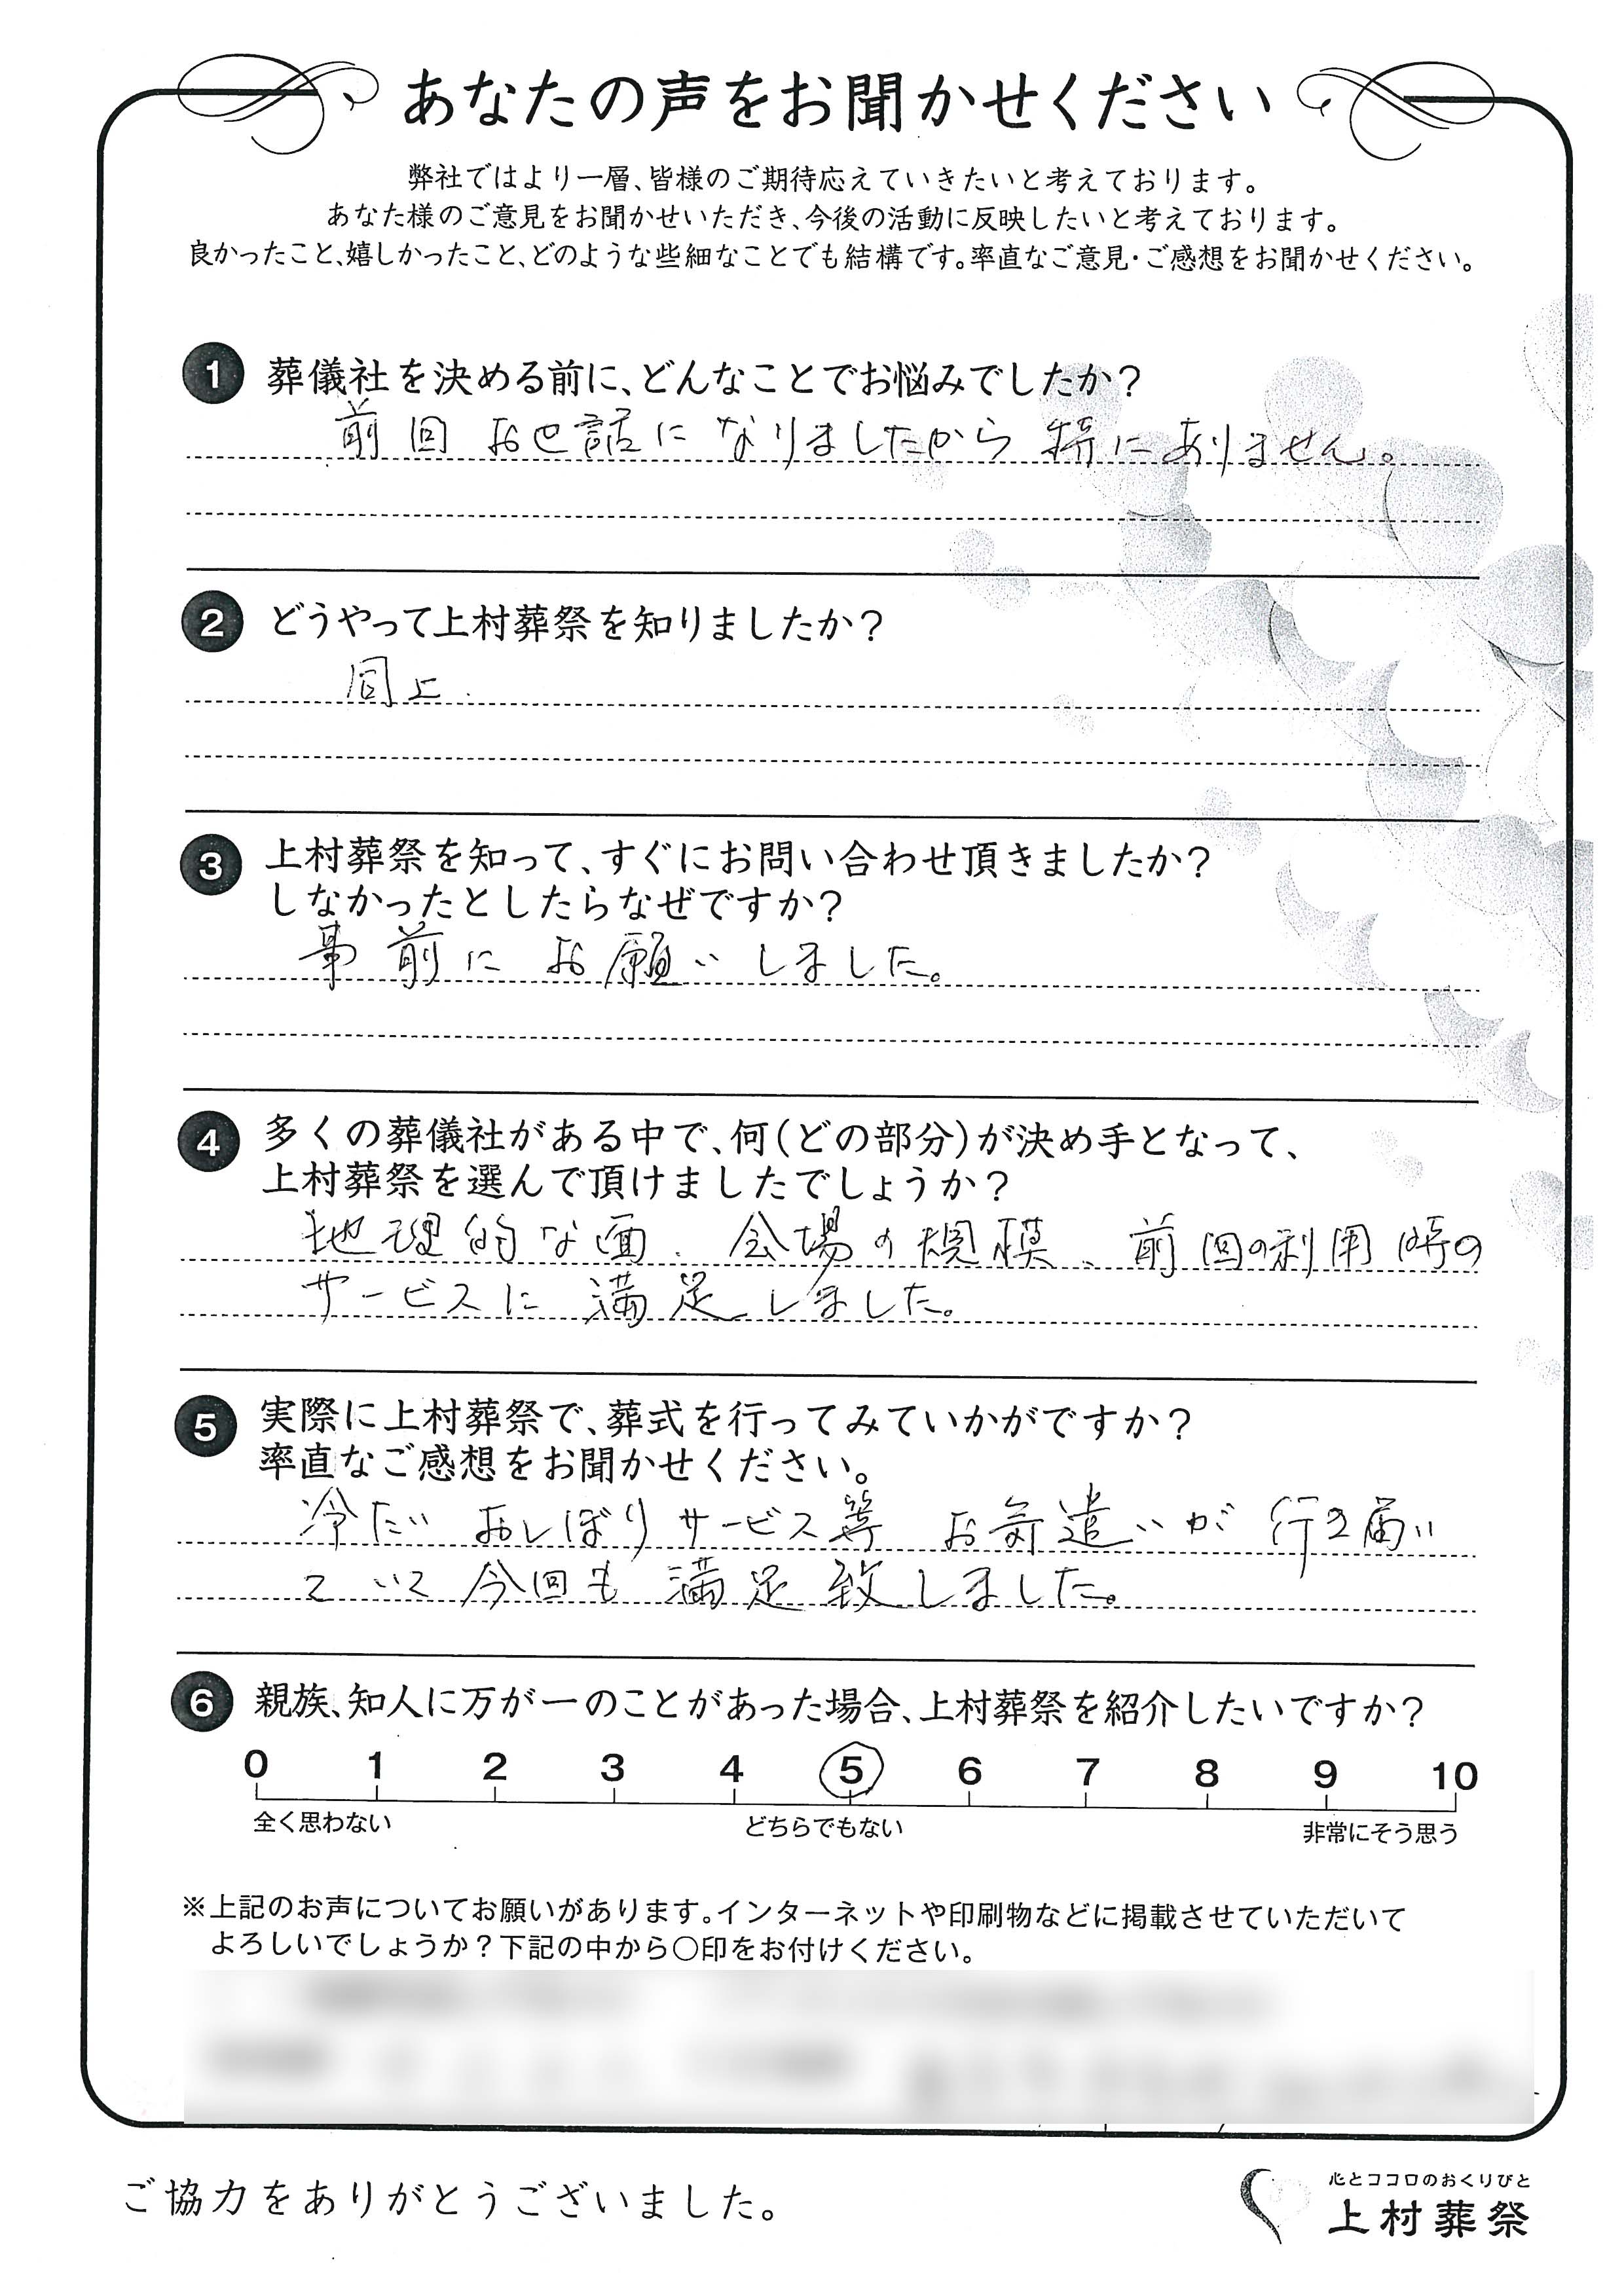 あなたの声をお聞かせください
弊社ではより一層、皆様のご期待応えていきたいと考えております。
あなた様のご意見をお聞かせいただき、今後の活動に反映したいと考えております。
良かったこと、嬉しかったこと、どのような些細なことでも結構です。率直なご意見・ご感想をお聞かせください。
1 葬儀社を決める前に、どんなことでお悩みでしたか?
前回 お世話に なりましたから 特に ありません。
2 どうやって上村葬祭を知りましたか?
同上.
3 上村葬祭を知って、すぐにお問い合わせ頂きましたか?
しなかったとしたらなぜですか?
事前に お願い しました。
4 多くの葬儀社がある中で、何(どの部分)が決め手となって、
上村葬祭を選んで頂けましたでしょうか?
地理的な面、会場の規模、前回の利用時の
サービスに 満足しました。
5 実際に上村葬祭で、葬式を行ってみていかがですか?
率直なご感想をお聞かせください。
冷たい おしぼりサービス等 お気遣いが 行き届い
て いて 今回も 満足致しました。
6 親族、知人に万が一のことがあった場合、上村葬祭を紹介したいですか?
0 1 2 3 4 5 6 7 8 9 10
全く思わない どちらでもない 非常にそう思う
※上記のお声についてお願いがあります。インターネットや印刷物などに掲載させていただいて
よろしいでしょうか?下記の中から○印をお付けください。
ご協力をありがとうございました。
心とココロのおくりびと
上村葬祭